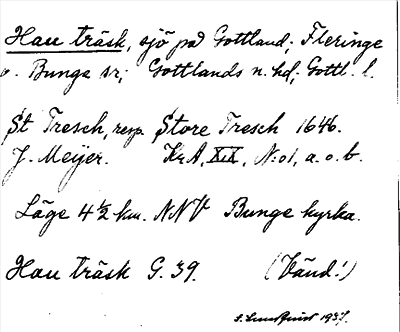 Hau träsk, sjö på Gottland; Fleringe
o. Bunge sn; Gottlands n. hd; Gottl. l.
St Tresch, resp. Store Tresch 1646.
J. Meijer. KrA, XIX, N:o1, a. o. b.
Läge 4½ km. NNV Bunge kyrka.
Hau träsk G. 39. (Vänd!)
S. Lundquist 1937.